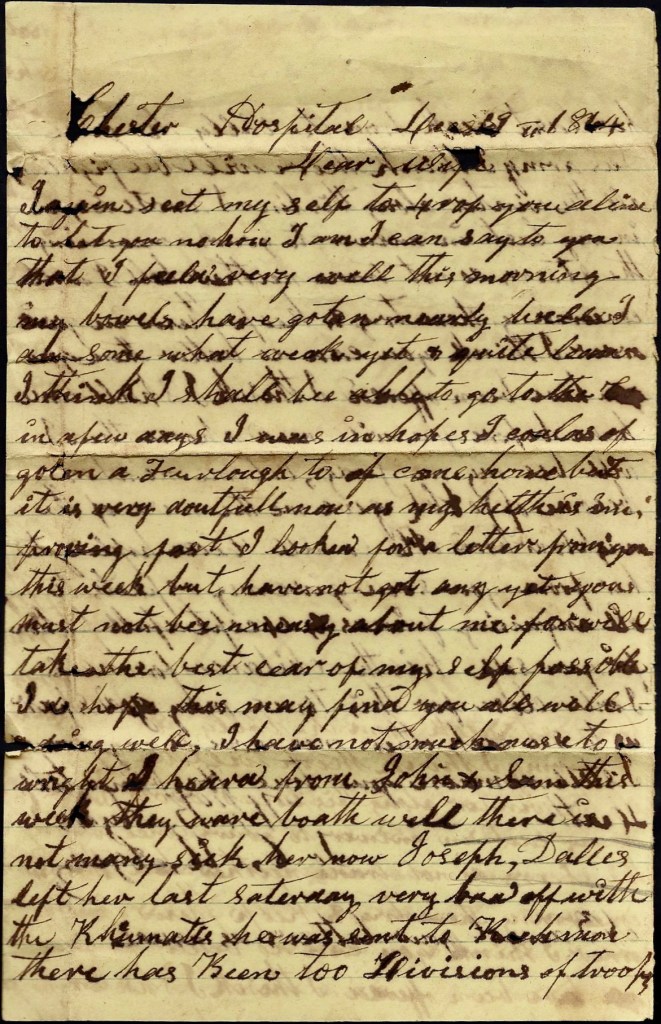 Chester Hospital 1864
Dear Wife
I again seet my self to drop you a line
to let you no how I am I can say to you
that I feeld very well this morning
my bowels have goten nearly well I
am some what weak yet & quite
I think I shall bee able to go to the
in a few days I was in hopes I could of
goten a Furlough to of come home but
it is very doutfull now as my helth is im,
proving fast I looked for a letter from you
this week but have not got any yet you
must not bee uneasy about me for will
take the best cear of my self possible
I do hope this may find you all well
& doing well, I have not much nuse to
wright I heard from John & Sam this
week they ware boath well there is
not many sick her now Joseph, Dalles
left her last saterday very bad off with
the Rhumatis he was sent to Richmon
there has Been too Divisions of troops